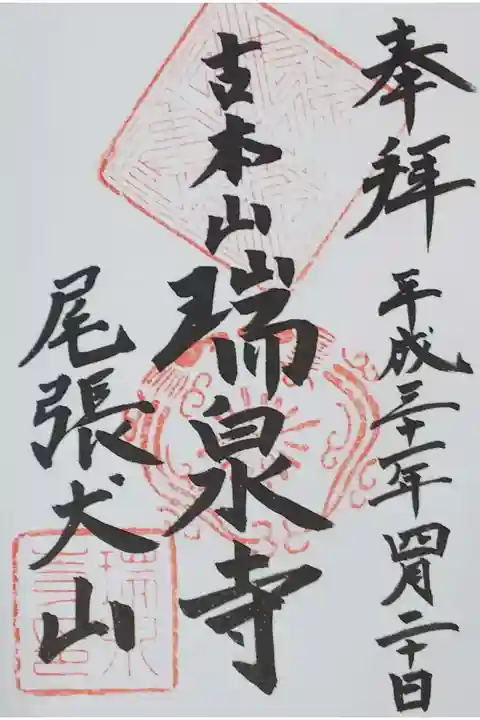 奉拝
平成三十一年四月二十日
古本山瑞泉寺
尾張犬山